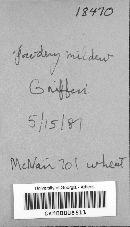 18470
Powdery mildew
Griffin
5/15/81
McNair 701 wheat
University of Georgia - Athens